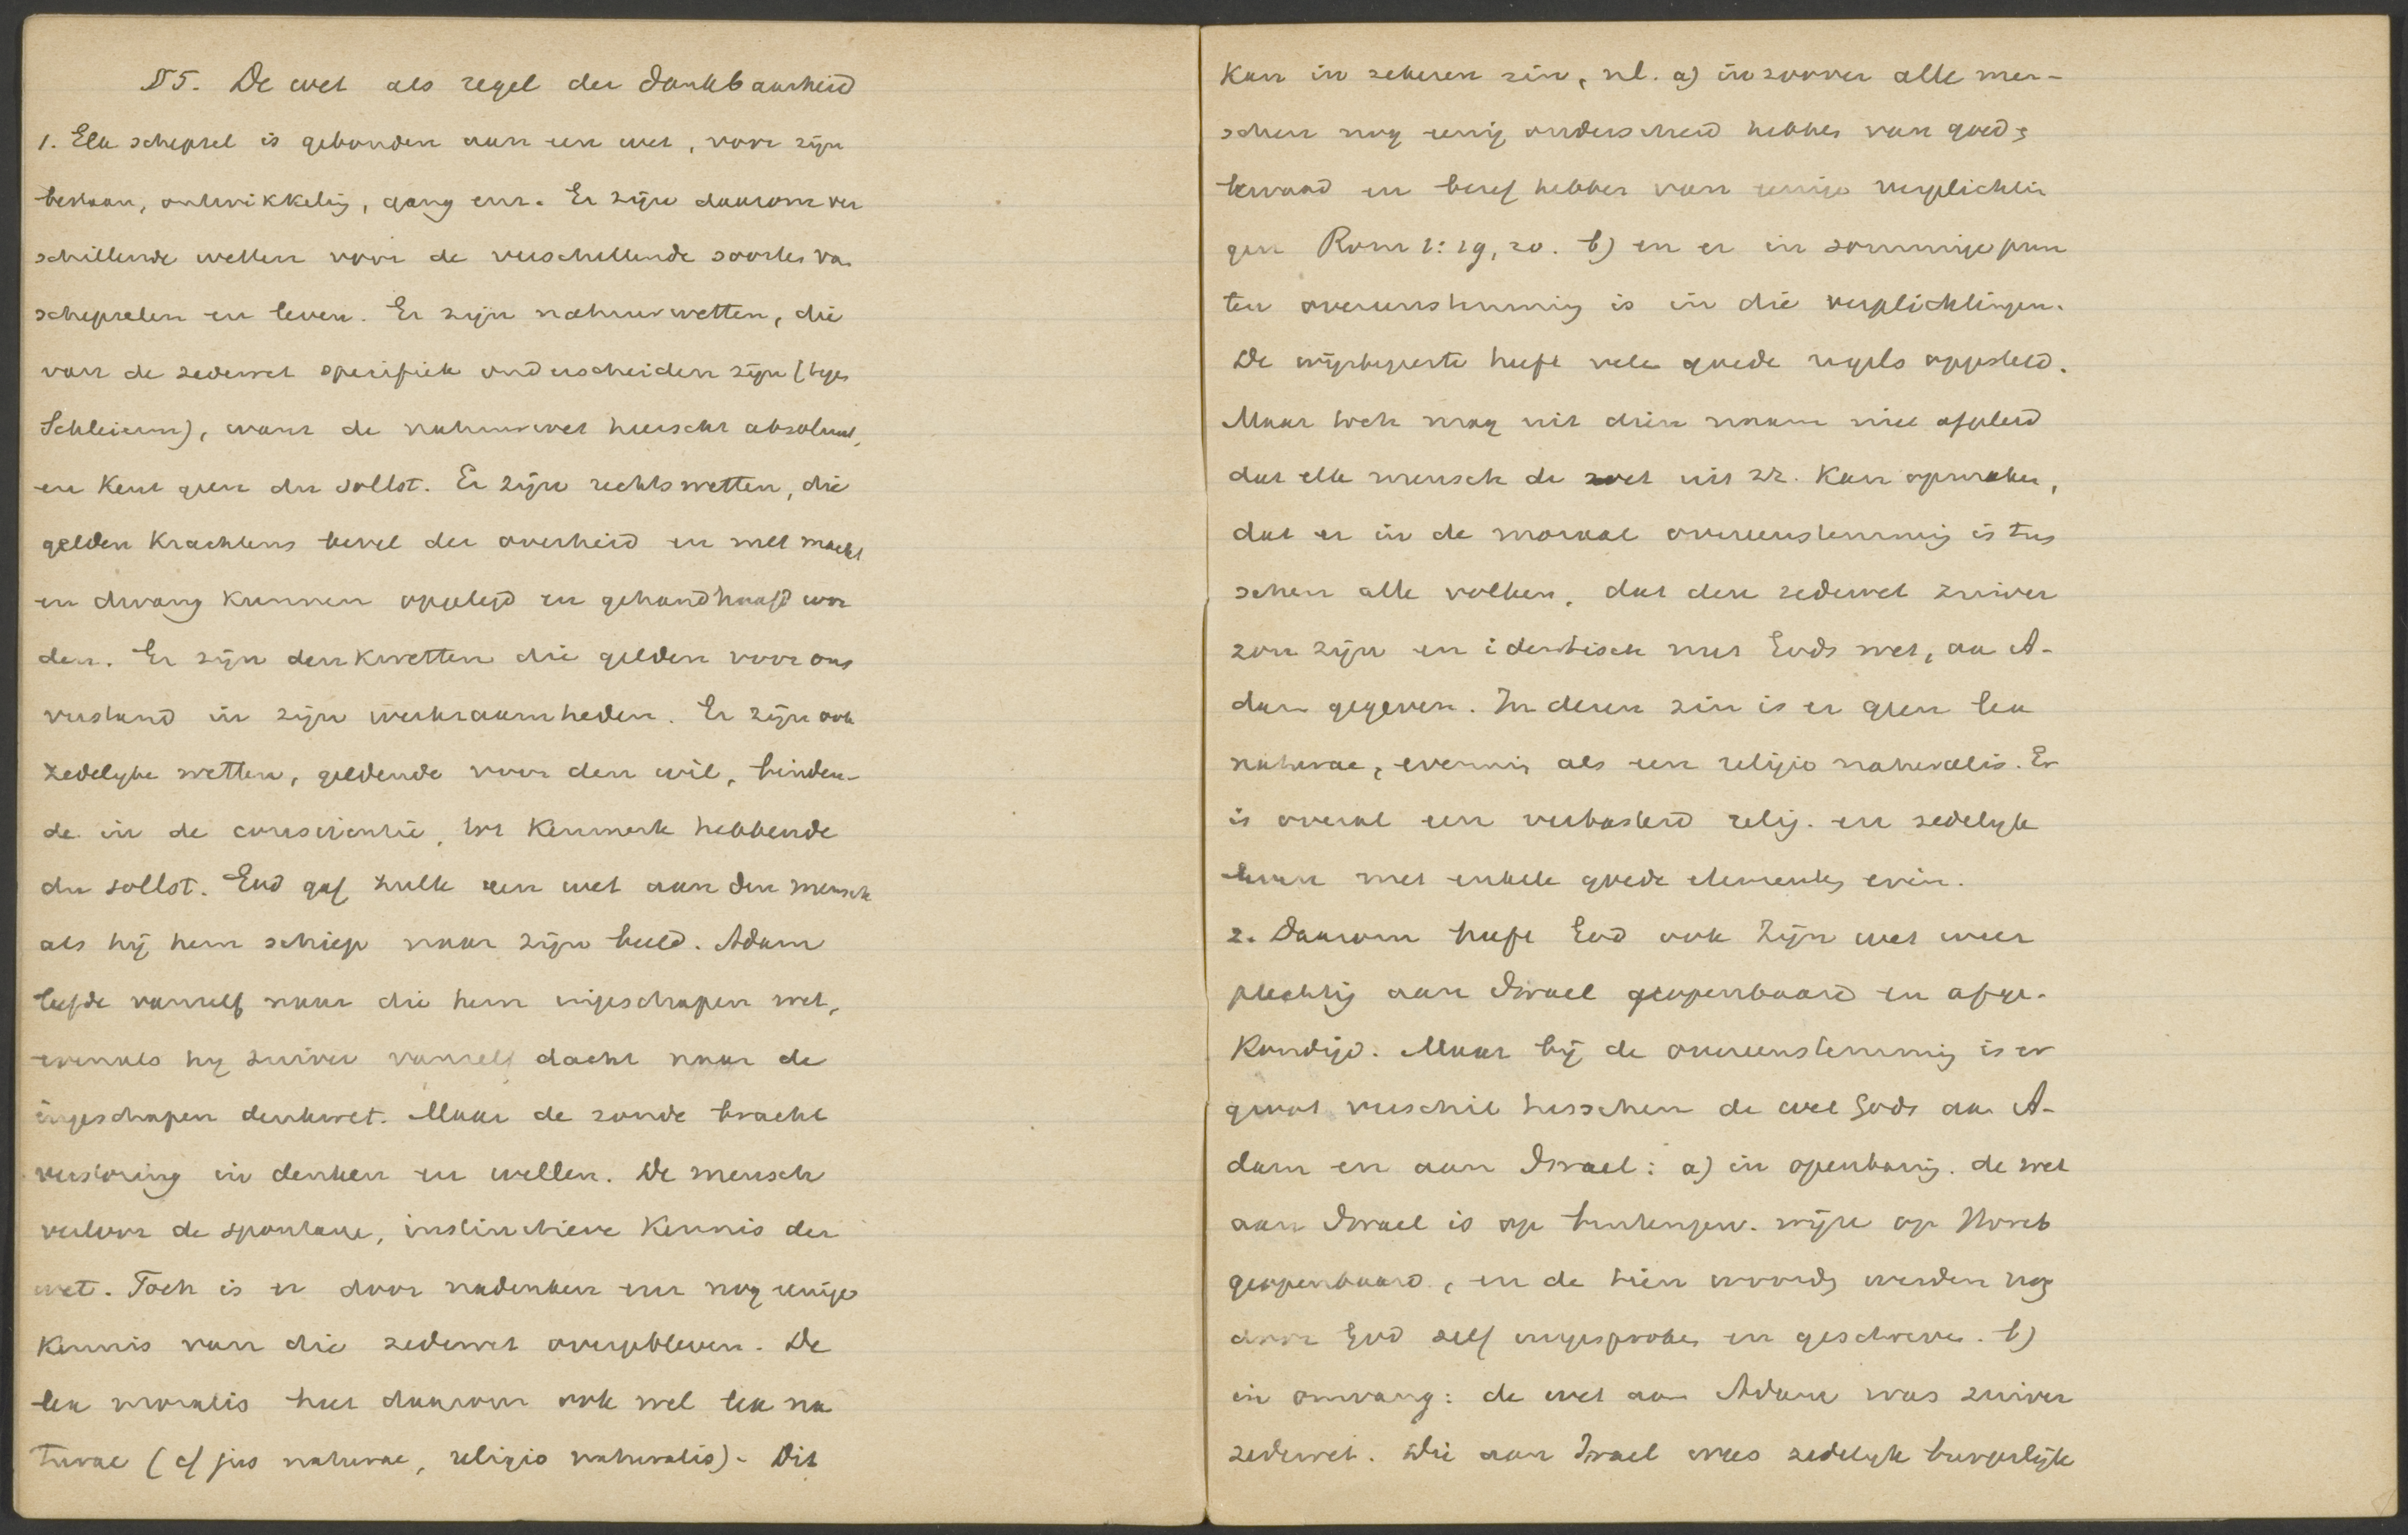 §5. De wet als regel der dankbaarheid
1. Elk schepsel is gebonden aan een wet, voor zijn
bestaan, ontwikkeling, gang enz. Er zijn daarom ver
schillende wetten voor de verschillende soorten van
schepselen en leven. Er zijn natuurwetten, die
van de zedewet specifiek onderscheiden zijn (tegen
Schleierm), want de natuurwet heerscht absoluut,
en kent geen du sollst. Er zijn rechtswetten, die
gelden krachtens bevel der overheid en met macht
en dwang kunnen opgelegd en gehandhaafd wor
den. Er zijn denkwetten die gelden voor ons
verstand in zijn werkzaamheden. Er zijn ook
zedelyke wetten, geldende voor den wil, binden-
de in de conscientie, tot kenmerk hebbende
du sollst. God gaf zulk een wet aan den mensch
als hij hem schiep naar zijn beeld. Adam
leefde vanzelf naar die hem ingeschapen wet,
evenals hy zuiver vanzelf dacht naar de
ingeschapen denkwet. Maar de zonde bracht
verstoring in denken en willen. De mensch
verloor de spontane, instinctieve kennis der
wet. Toch is er door nadenken enz nog eenige
kennis van die zedewet overgebleven. De
lex moralis heet daarom ook wel lex na
turae (cf jus naturae, religio naturalis). Dit
kan in zekeren zin, nl. a) in zoover alle men-
schen nog eenig onderscheid hebben van goed &
kwaad en besef hebben van eenige verplichtin
gen Rom 1:19, 20. b) en er in sommige pun
ten overeenstemming is in die verplichtingen.
De wijsbegeerte heeft vele goede regels opgesteld.
Maar toch mag uit dien naam niet afgeleid
dat elk mensch de wet uit zz. kan opmaken,
dat er in de moraal overeenstemming is tus
schen alle volken, dat deze zedewet zuiver
zou zijn en identisch met Gods wet, aan A-
dam gegeven. In dezen zin is er geen lex
naturae, evenmin als een religio naturalis. Er
is overal een verbasterd relig. en zedelyk
leven met enkele goede elementen erin.
2. Daarom heeft God ook Zijn wet weer
plechtig aan Israel geopenbaard en afge-
kondigd. Maar bij de overeenstemming is er
groot verschil tusschen de wet Gods aan A-
dam en aan Israel: a) in openbaring. de wet
aan Israel is op buitengew. wijze op Horeb
geopenbaard, en de tien woorden werden nog
door God zelf uitgesproken en geschreven. b)
in omvang: de wet aan Adam was zuiver
zedewet. Die aan Israel was zedelyk burgerlijk